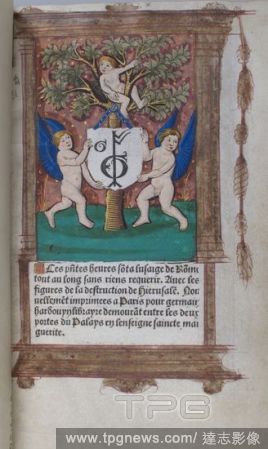 Ces pñtes heures sõt a lusaige de Rõme
tout au long sans riens requerir. Auec les
figures de la destruction de Hierusalẽ. Nou
uellemẽt imprimees a Paris pour germain
hardouyn libraire demourãt entre les deux
portes du Palays en lenseigne saincte mar
guerite.
TPG
www.tpgnews.com / 達志影像